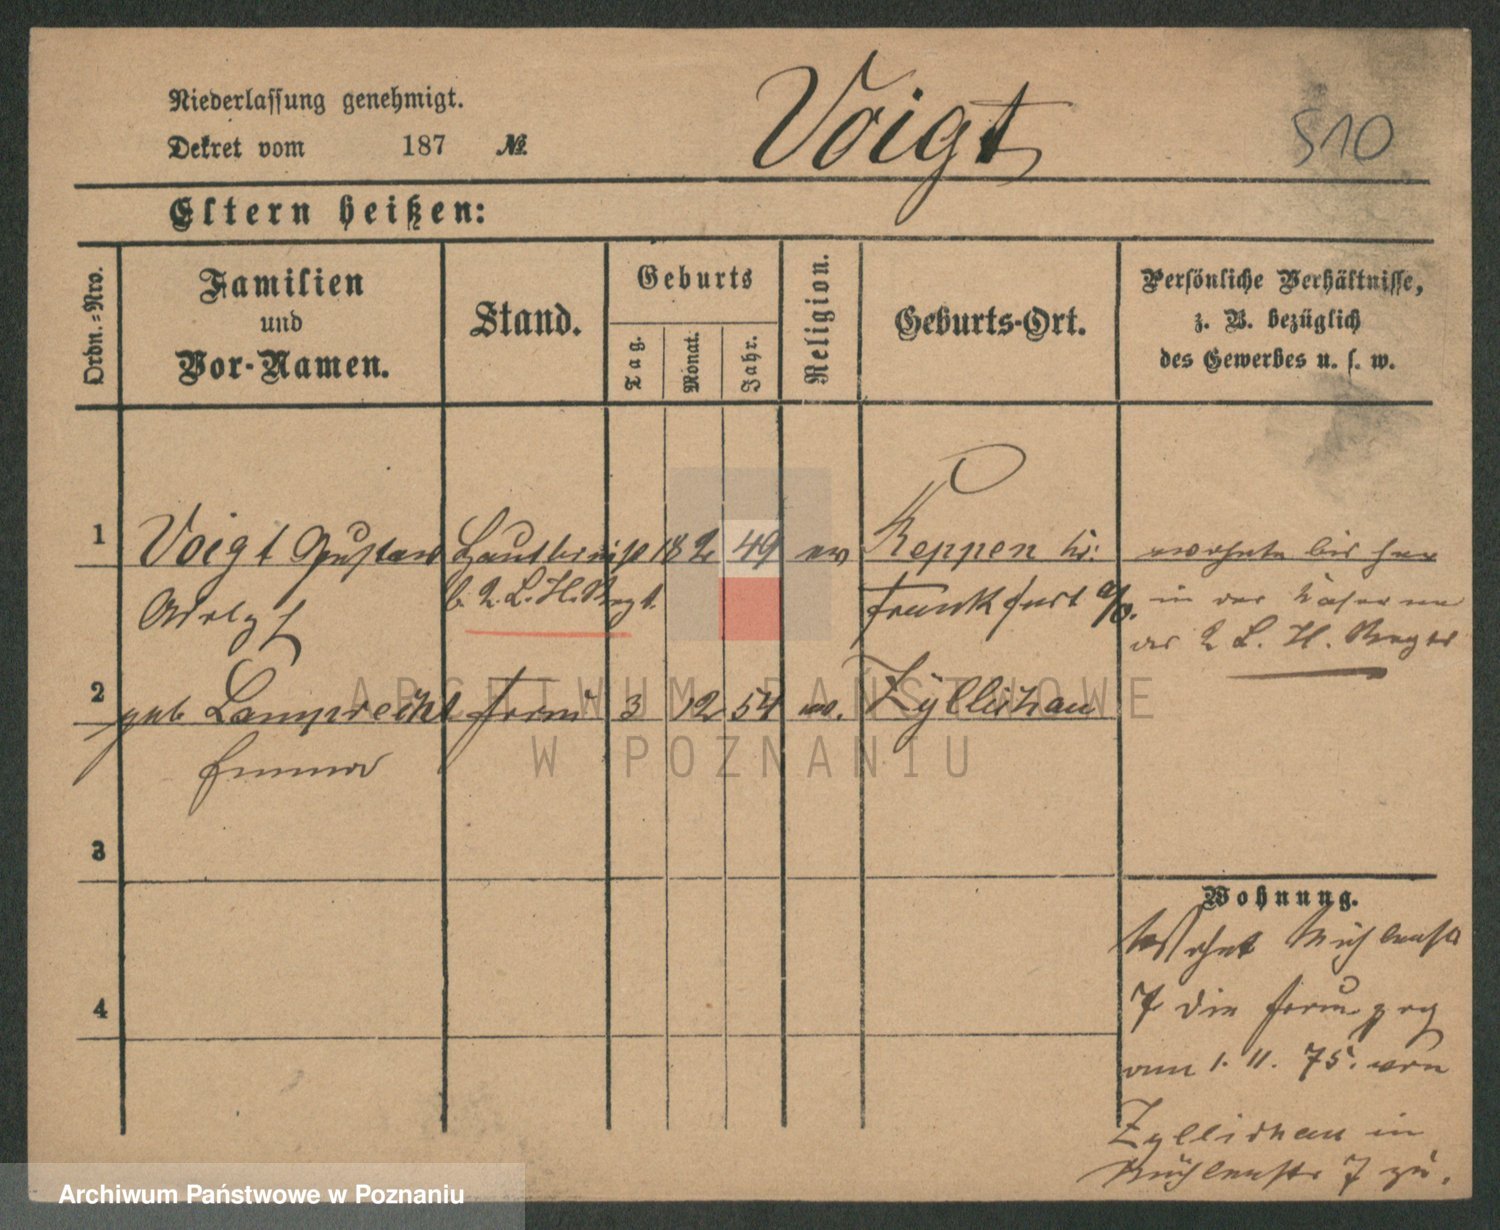 Niederlassung genehmigt.
Dekret vom 187 №
Voigt
510
Eltern heißen:
Ordn.-Nro.
Familien
und
Vor-Namen.
Stand.
Geburts
Tag.
Monat.
Jahr.
Religion.
Geburts-Ort.
Persönliche Verhältnisse,
z. B. bezüglich
des Gewerbes u. s. w.
1 Voigt Gustav Hautboist 18 2 49 ev Reppen bei wohnte bis her
Adolph b. 2. L. H. Regt. Frankfurt a/O. in der Kaserne
des 2 L. H. Regts
2 geb Lamprecht Frau 3 12 54 ev. Züllichau
Emma
3
4
Wohnung.
Wohnt Mühlenstr
7 die Frau zog
am 1. 11. 75. von
Züllichau in
Mühlenstr 7 zu.
ARCHIWUM PAŃSTWOWE
W POZNANIU
Archiwum Państwowe w Poznaniu